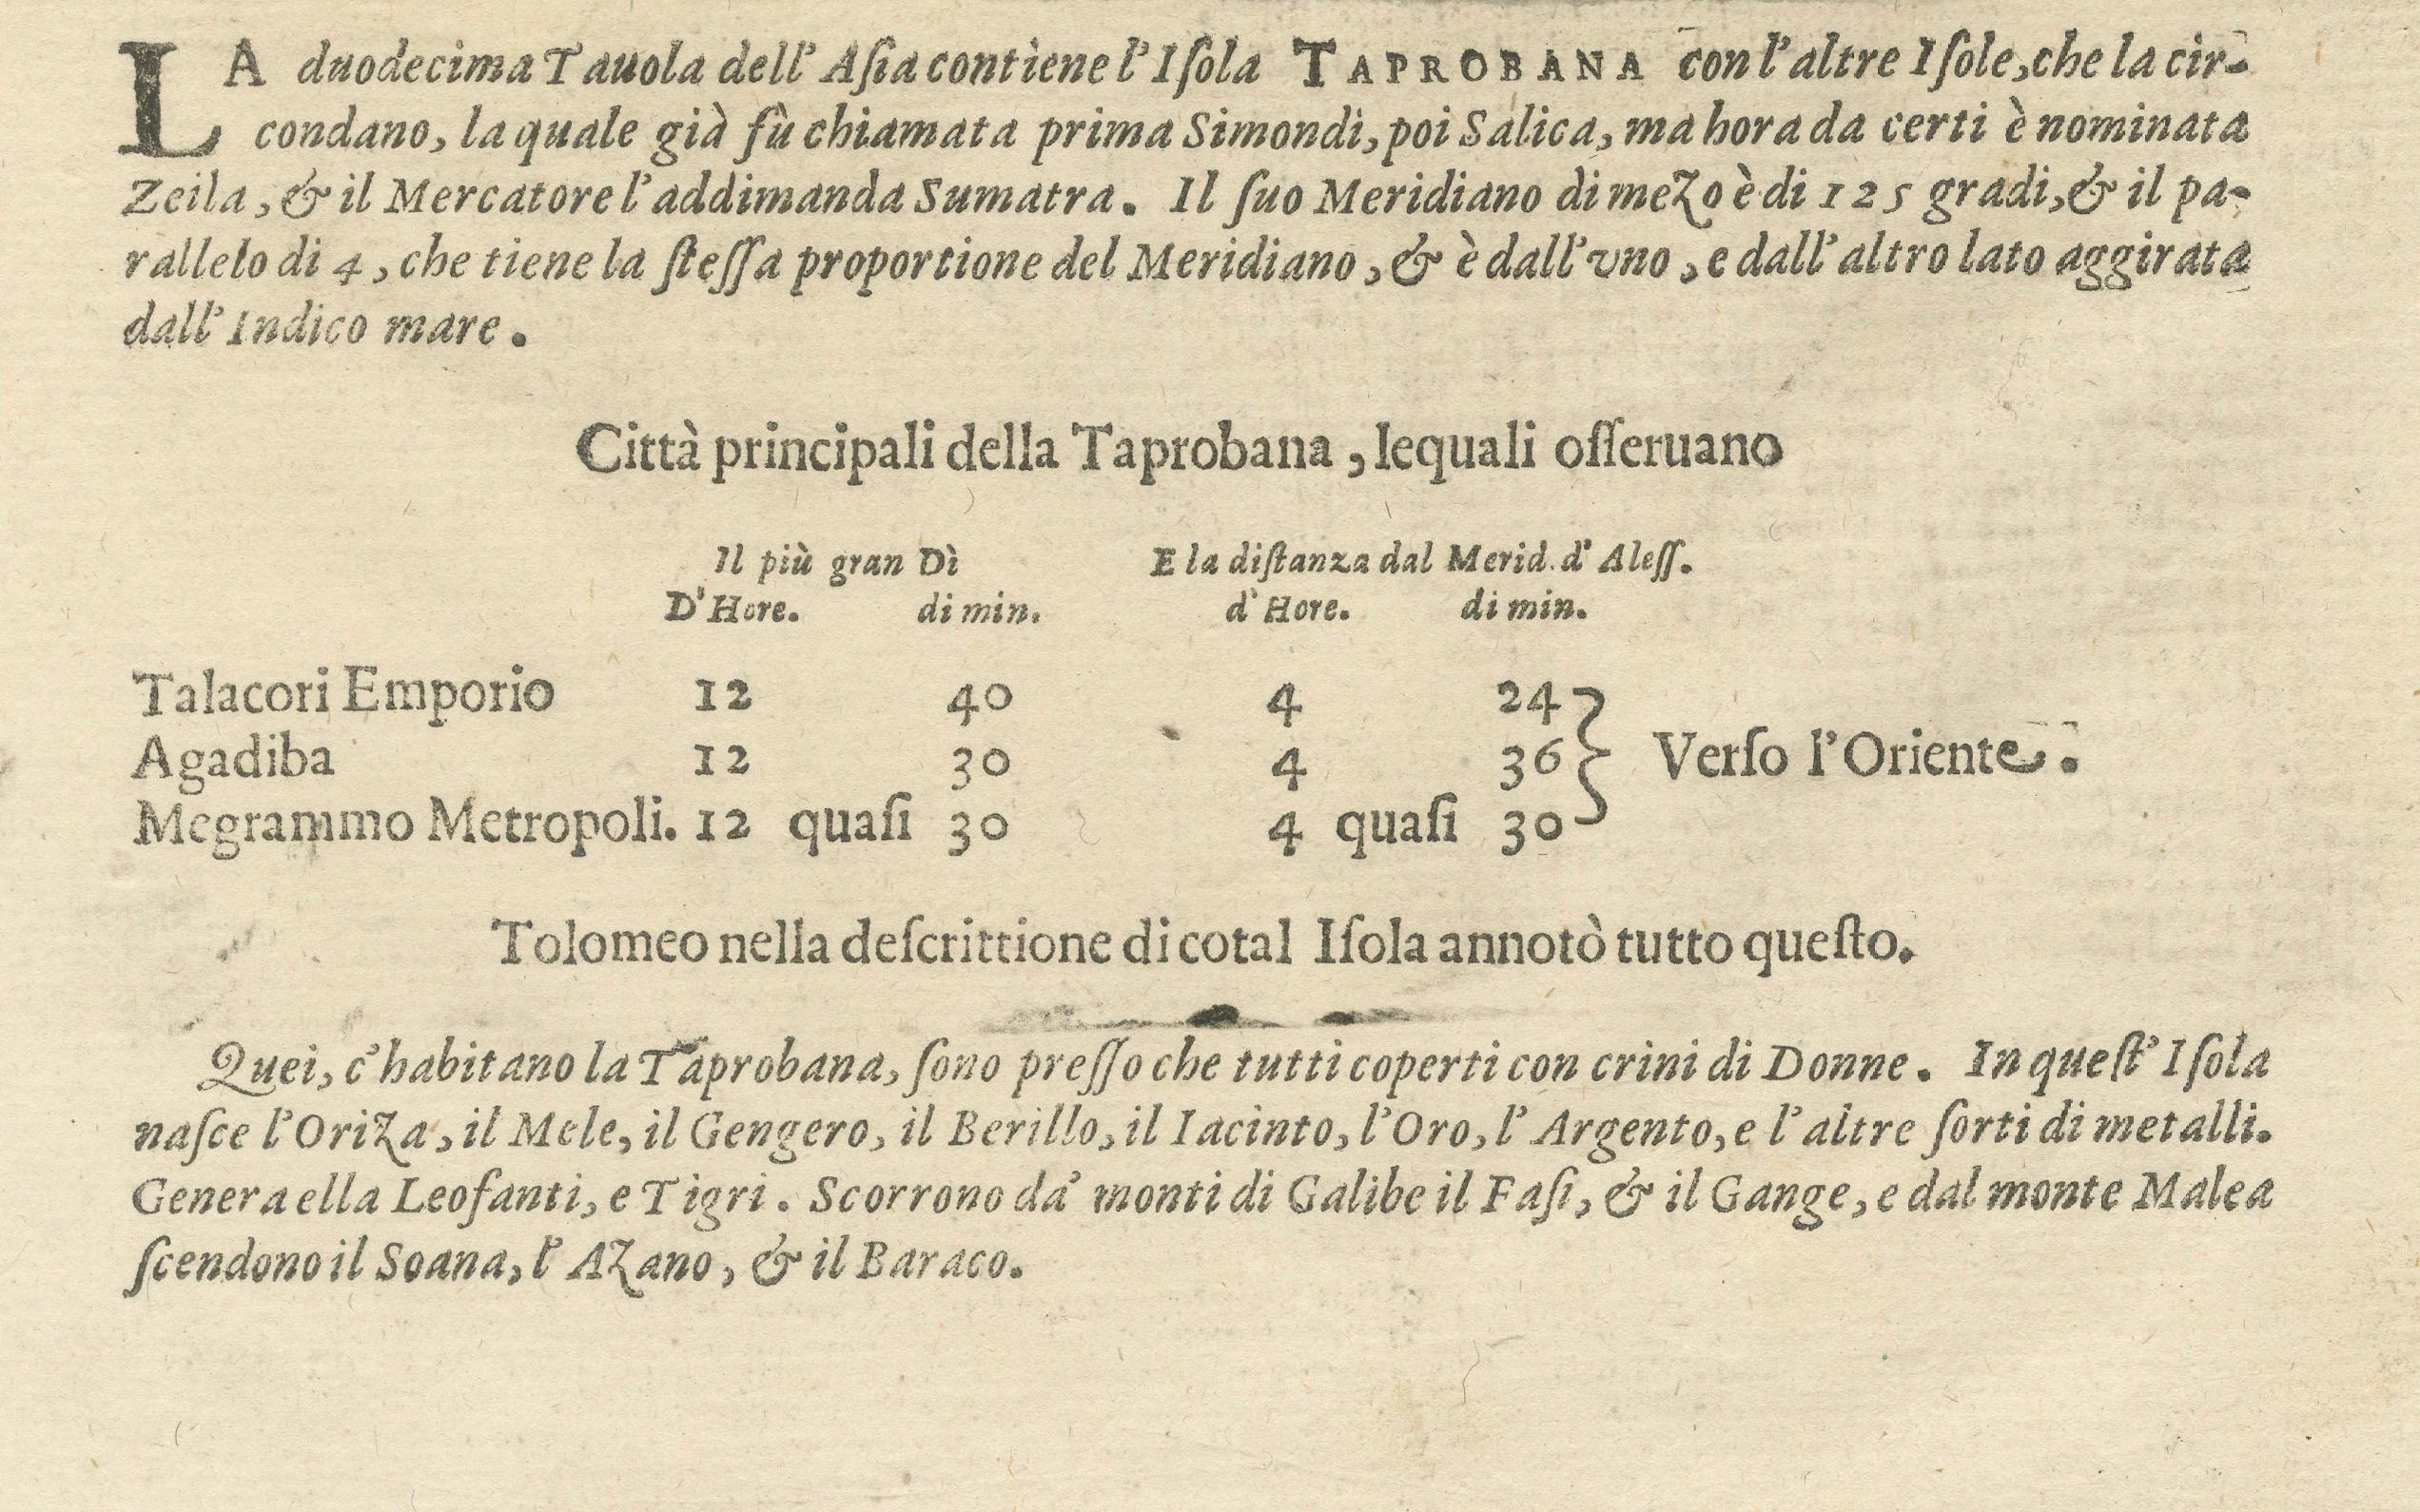 LA duodecima Tauola dell' Aſia contiene l'Iſola TAPROBANA con l'altre Iſole, che la cir-
condano, la quale già fù chiamata prima Simondi, poi Salica, ma hora da certi è nominata
Zeila, & il Mercatore l'addimanda Sumatra. Il ſuo Meridiano di mezo è di 125 gradi, & il pa-
rallelo di 4, che tiene la ſteſſa proportione del Meridiano, & è dall'vno, e dall'altro lato aggirata
dall'Indico mare.
Città principali della Taprobana, lequali oſſeruano
Il più gran Dì E la diſtanza dal Merid. d' Aleſſ.
D'Hore. di min. d'Hore. di min.
Talacori Emporio 12 40 4 24
Agadiba 12 30 4 36 } Verſo l'Oriente.
Megrammo Metropoli. 12 quaſi 30 4 quaſi 30
Tolomeo nella deſcrittione di cotal Iſola annotò tutto queſto.
Quei, c'habitano la Taprobana, ſono preſſo che tutti coperti con crini di Donne. In queſt'Iſola
naſce l'Oriza, il Mele, il Gengero, il Berillo, il Iacinto, l'Oro, l'Argento, e l'altre ſorti di metalli.
Genera ella Leofanti, e Tigri. Scorrono da' monti di Galibe il Faſi, & il Gange, e dal monte Malea
ſcendono il Soana, l'Azano, & il Baraco.